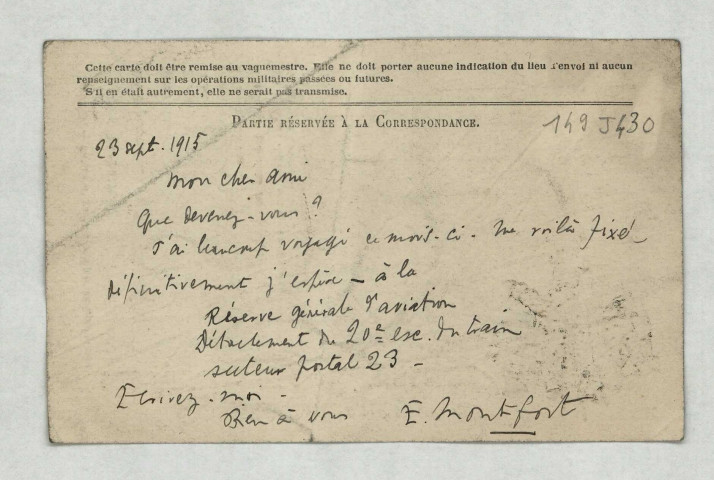 Cette carte doit être remise au vaguemestre. Elle ne doit porter aucune indication du lieu d'envoi ni aucun
renseignement sur les opérations militaires passées ou futures.
S'il en était autrement, elle ne serait pas transmise.
PARTIE RÉSERVÉE À LA CORRESPONDANCE.
149 J430
23 sept. 1915
Mon cher ami
Que devenez-vous ?
J'ai beaucoup voyagé ce mois-ci - Me voilà fixé -
définitivement j'espère - à la
Réserve générale d'aviation
Détachement du 20e esc. du train
secteur postal 23 -
Ecrivez-moi -
Bien à vous E. Montfort